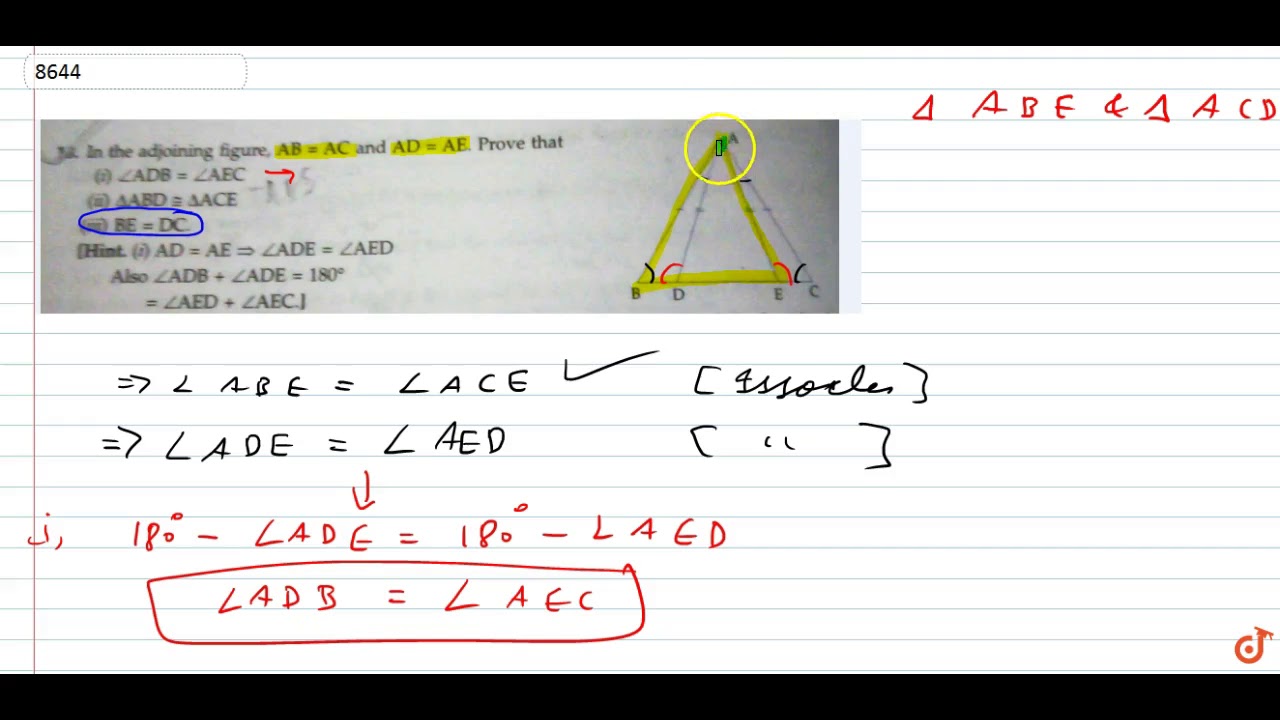 8644
Δ A B E & Δ A C D
In the adjoining figure, AB = AC and AD = AE. Prove that
(i) ∠ADB = ∠AEC →
(ii) ΔABD ≅ ΔACE
(iii) BE = DC.
[Hint. (i) AD = AE ⇒ ∠ADE = ∠AED
Also ∠ADB + ∠ADE = 180°
= ∠AED + ∠AEC.]
A
B D E C
⇒ ∠ ABE = ∠ACE ✓
⇒ ∠ADE = ∠AED [ " ]
i, 180° - ∠ADE = 180° - ∠AED
∠ADB = ∠AEC